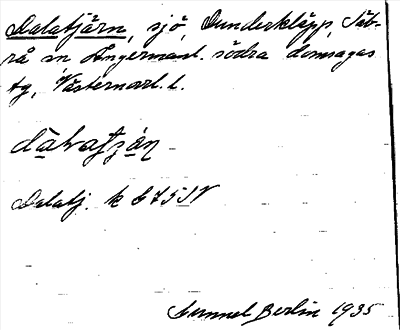 Dalatjärn, sjö, Dunderkläpp, Säb-
rå sn Ångermanl. södra domsagas
tg, Västernorrl. l.
dàlatjàn
Dalatj. k 675 SV
Gunnel Berlin 1935